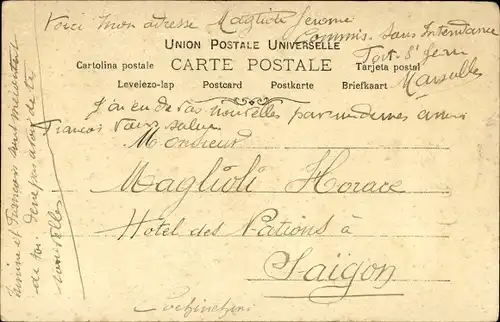 Voici mon adresse Maglioli Jerome
Commis. Sous Intendance
Fort St Jean
Marseille
UNION POSTALE UNIVERSELLE
CARTE POSTALE
Cartolina postale Tarjeta postal
Levelezo-lap Postcard Postkarte Briefkaart
J'ai eu de vos nouvelles par un de mes amis
Francois vous salue
Monsieur
Maglioli Horace
Hotel des Nations à
Saigon
Cochinchine
et Francois sont
de toi de ne pas avoir de tes
nouvelles